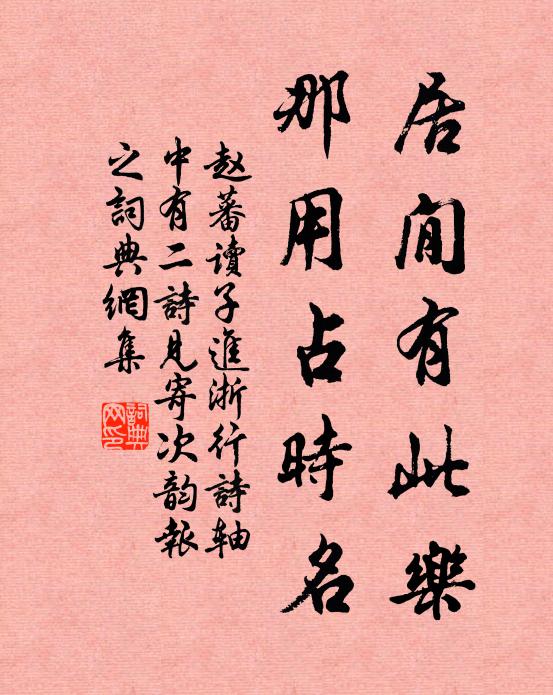 居閒有此樂
那用占時名
赵蕃讀子進浙行詩軸
中有二詩見寄次韵報
之詞典網集
詞典网印